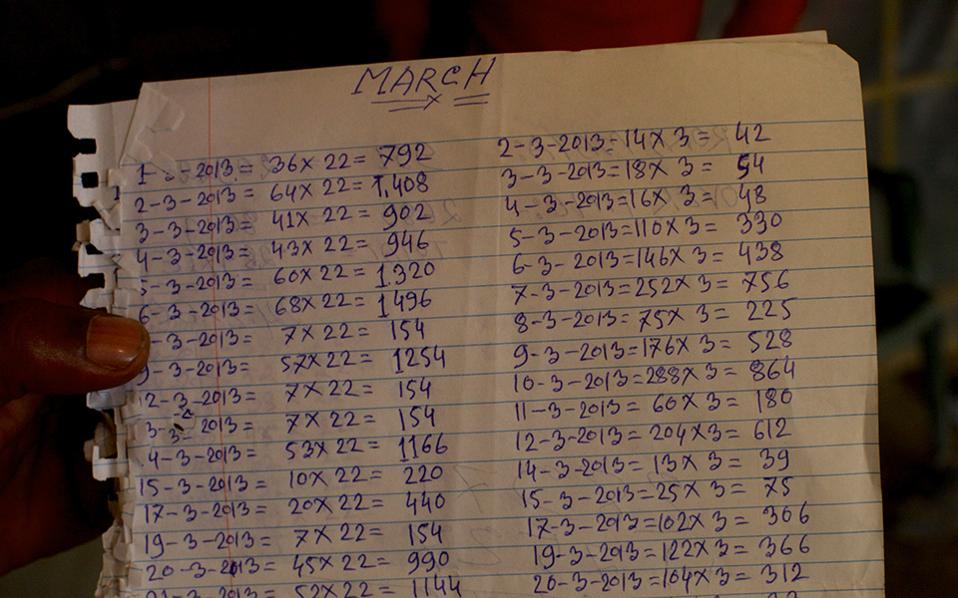 MARCH
1- -2013= 36×22= 792
2-3-2013= 64×22= 1,408
3-3-2013= 41×22= 902
4-3-2013= 43×22= 946
5-3-2013= 60×22= 1320
6-3-2013= 68×22= 1496
-3-2013= 7×22= 154
9-3-2013= 57×22= 1254
12-3-2013= 7×22= 154
3- 2013= 7×22= 154
4-3-2013= 53×22= 1166
15-3-2013= 10×22= 220
17-3-2013= 20×22= 440
19-3-2013= 7×22= 154
20-3-2013= 45×22= 990
-3-2013= 52×22= 1144
2-3-2013=14×3= 42
3-3-2013=18×3= 54
4-3-2013=16×3= 48
5-3-2013=110×3= 330
6-3-2013=146×3= 438
7-3-2013=252×3= 756
8-3-2013=75×3= 225
9-3-2013=176×3= 528
10-3-2013=288×3= 864
11-3-2013=60×3= 180
12-3-2013=204×3= 612
14-3-2013=13×3= 39
15-3-2013=25×3= 75
17-3-2013=102×3= 306
19-3-2013=122×3= 366
20-3-2013=104×3= 312